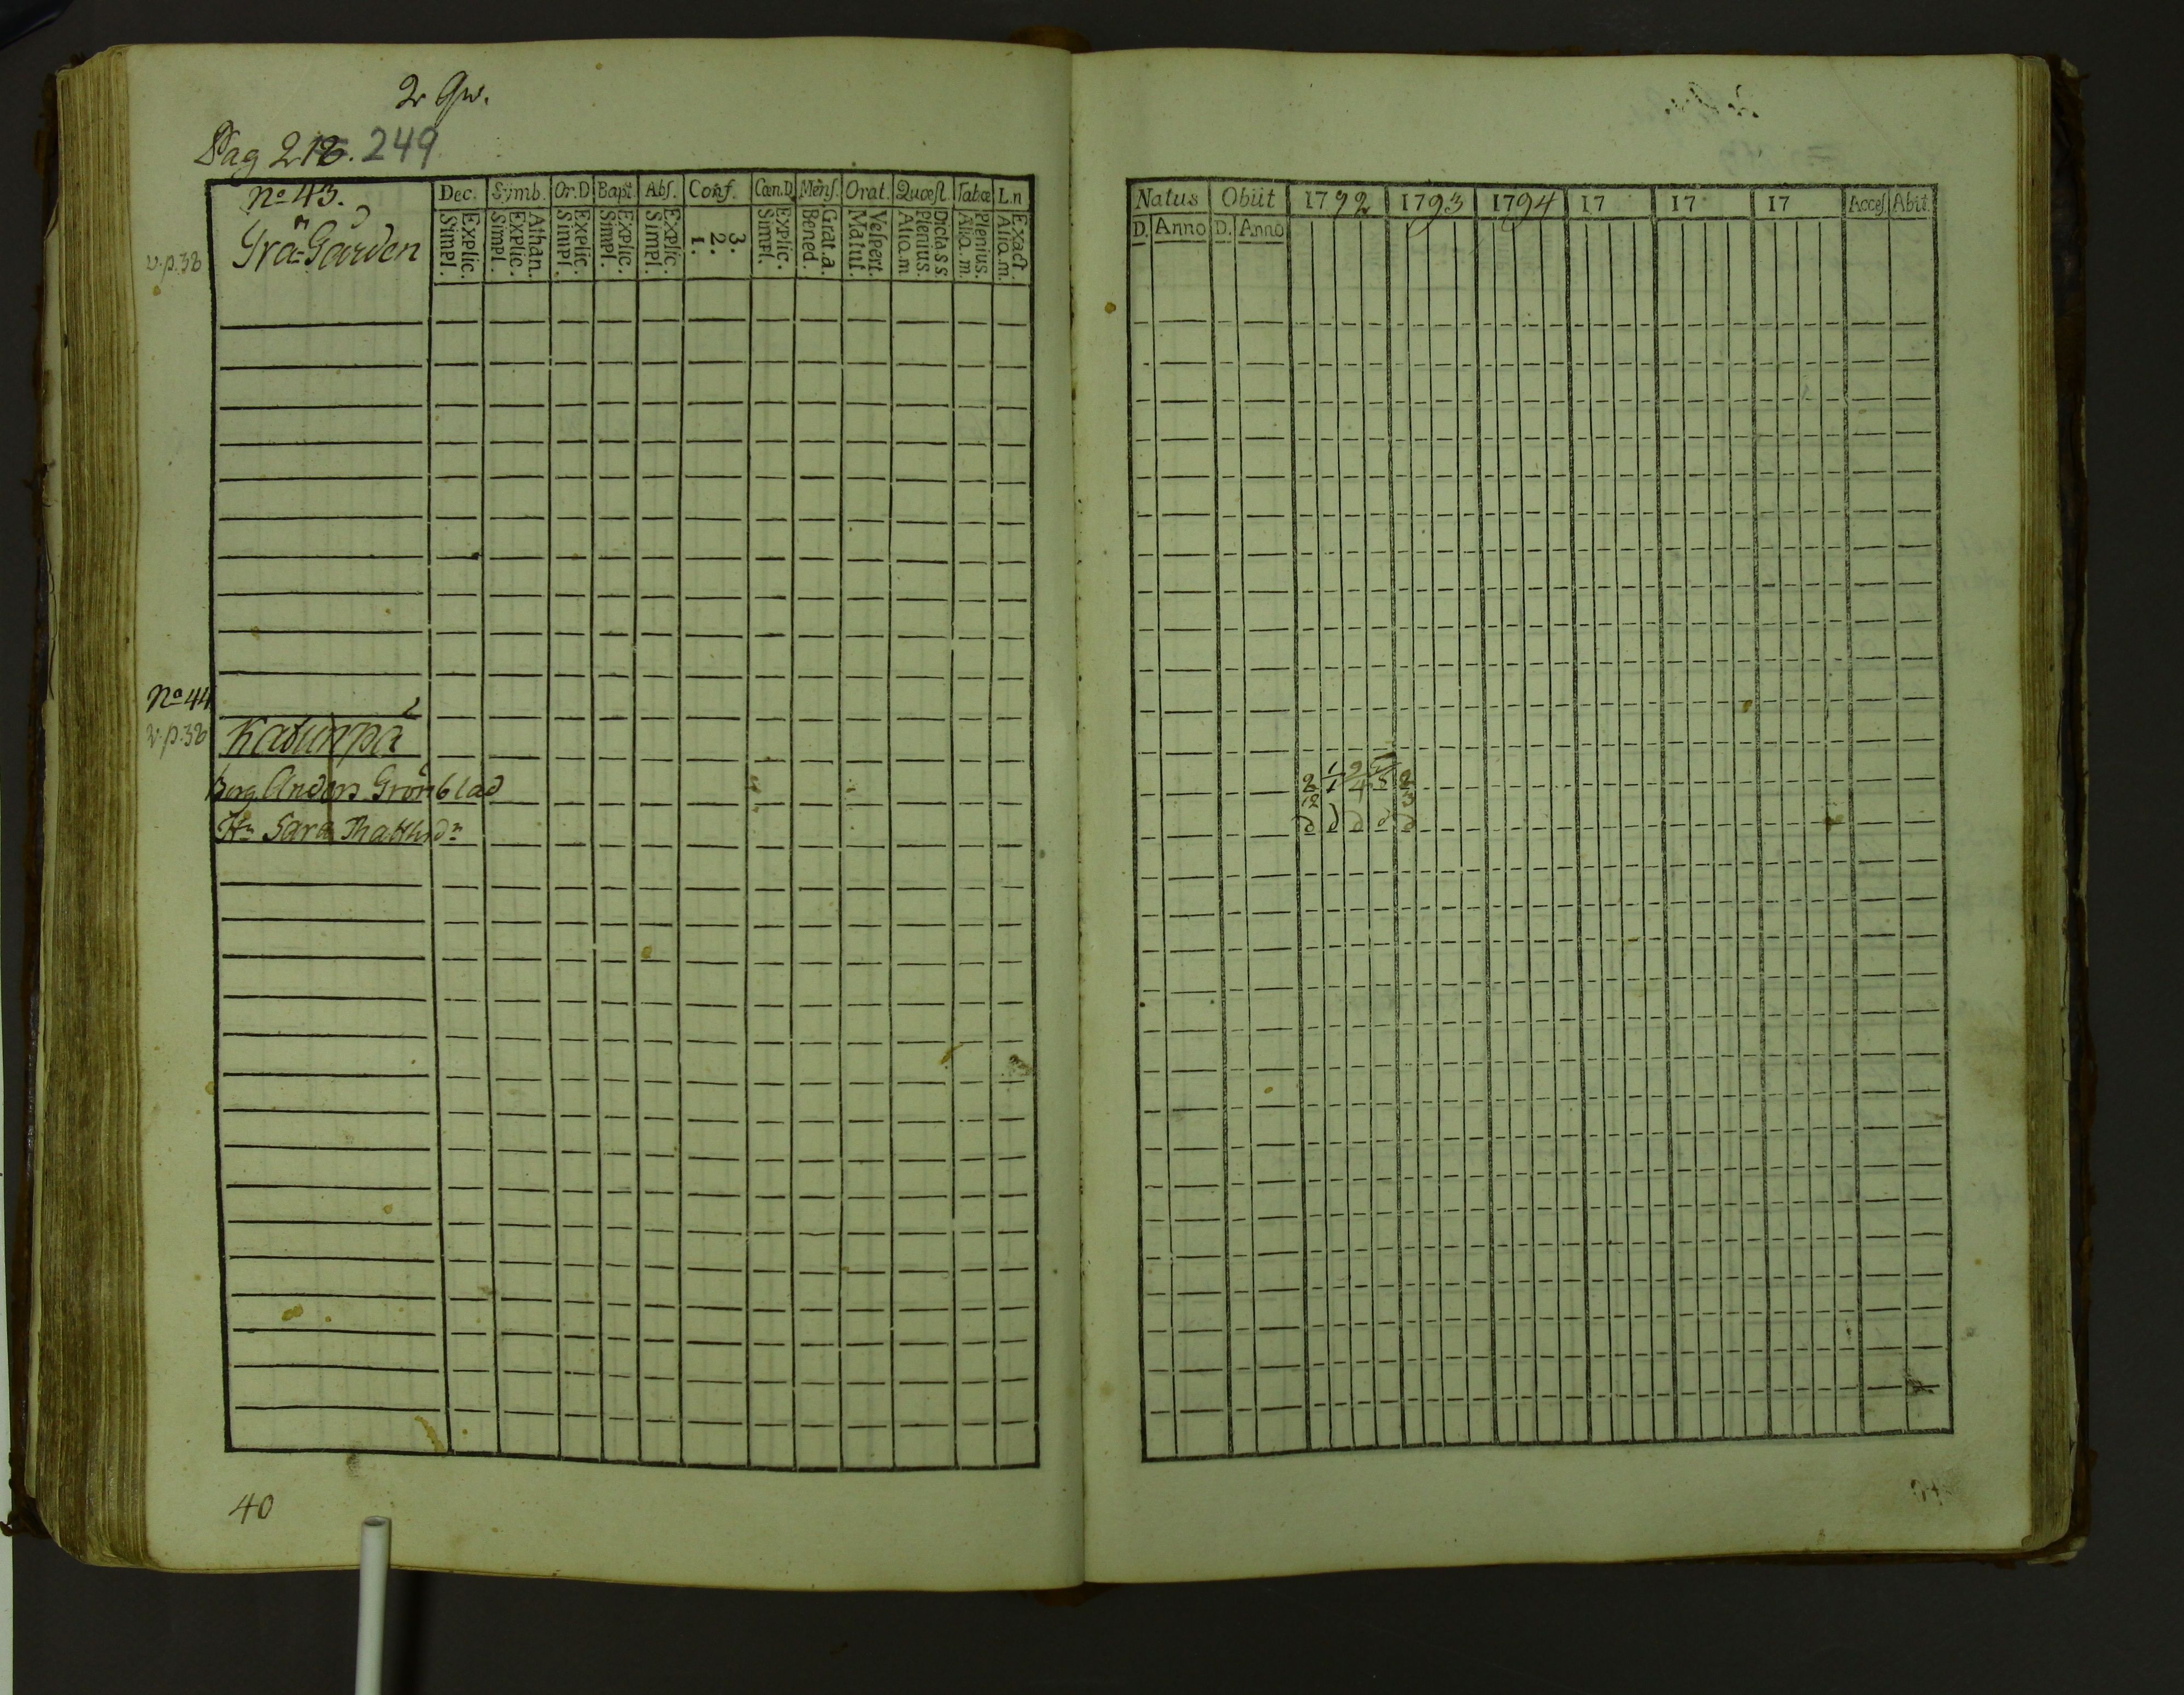 2r Qw.
Pag 218. 249
No 43.
Grå-Gården
v.p.38
Dec. Symb. Or.D Bapt Abs. Conf. Cœn.D Mens. Orat. Quæst. Tabœ L.n
Simpl. Explic. Simpl. Explic. Athan. Simpl. Explic. Simpl. Explic. Simpl. Explic. 1. 2. 3. Simpl. Explic. Bened. Grat.a. Matut. Vespert. Aliq.m Plenius. Dicta s s Aliq.m. Plenius. Aliq.m. Exact.
No 44
v.p.38
Katurpå
Borg. Anders Grönblad
Hu Sara Matthsdr
40
Natus Obiit 1792 1793 1794 17 17 17 Acces. Abit.
D. Anno D. Anno
2 1 4 5 2
12 3
d d d d d